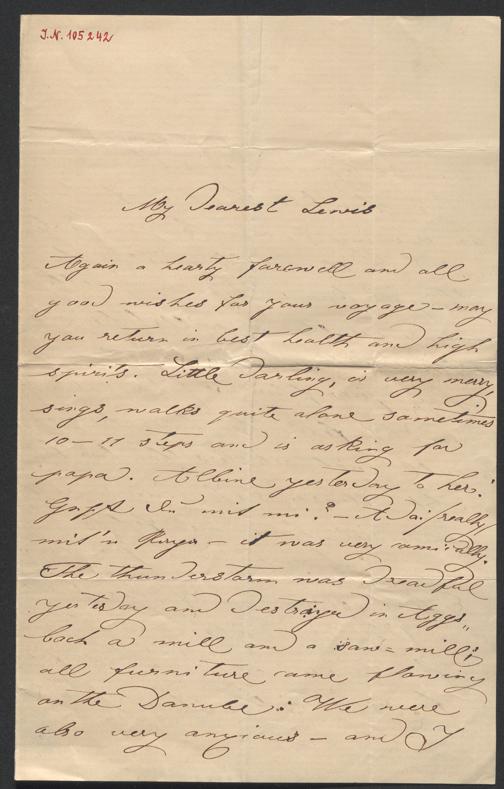 J.N. 105242
My Dearest Lewis
Again a hearty farewell and all
good wishes for your voyage – may
you return in best health and high
spirits. Little Darling, is very merry,
sings, walks quite alone sometimes
10–11 steps and is asking for
papa. Albine yesterday to her:
Gehst Du mit mir? – A dai (really)
mit'n – it was very comically.
The thunderstorm was dreadful
yesterday and destroyed in Aggs„
bach a mill and a saw=mill;
all furniture came flowing
on the Danube: We were
also very anxious – and I